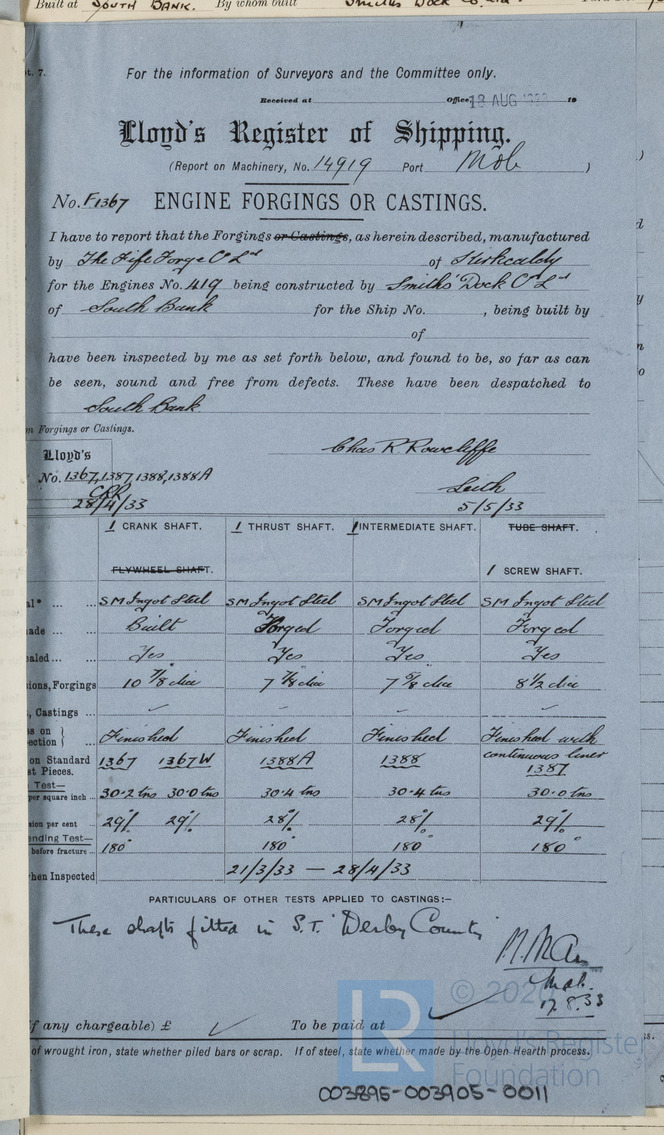 Built at SOUTH BANK. By whom built Smiths Dock Co. Ltd.
t. 7.
For the information of Surveyors and the Committee only.
Received at Office 18 AUG 1933 19
Lloyd's Register of Shipping.
(Report on Machinery, No. 14919 Port Mob )
No. F1367 ENGINE FORGINGS OR CASTINGS.
I have to report that the Forgings or Castings, as herein described, manufactured
by The Fife Forge Co Ld of Kirkcaldy
for the Engines No. 419 being constructed by Smiths' Dock Co Ld
of South Bank for the Ship No. , being built by
of
have been inspected by me as set forth below, and found to be, so far as can
be seen, sound and free from defects. These have been despatched to
South Bank
n Forgings or Castings.
Lloyd's
No. 1367, 1387, 1388, 1388A
CRR
28/4/33
Chas R Rowcliffe
Leith
5/5/33
1 CRANK SHAFT. 1 THRUST SHAFT. 1 INTERMEDIATE SHAFT. TUBE SHAFT.
FLYWHEEL SHAFT. 1 SCREW SHAFT.
al* ... ... SM Ingot Steel SM Ingot Steel SM Ingot Steel SM Ingot Steel
ade ... Built Forged Forged Forged
ealed ... ... Yes Yes Yes Yes
ions, Forgings 10 7/8" dia 7 7/8" dia 7 5/8" dia 8 1/2 dia
, Castings ...
s on } Finished Finished Finished Finished with
ection } continuous liner
on Standard 1367 1367W 1388A 1388 1387
st Pieces.
Test—
per square inch ... 30.2 tns 30.0 tns 30.4 tns 30.4 tns 30.0 tns
sion per cent 29% 29% 28% 28% 29%
ending Test—
before fracture ... 180° 180° 180° 180°
hen Inspected 21/3/33 — 28/4/33
PARTICULARS OF OTHER TESTS APPLIED TO CASTINGS:—
These shafts fitted in S.T. "Derby County"
Mob.
17.8.33
if any chargeable) £ To be paid at
of wrought iron, state whether piled bars or scrap. If of steel, state whether made by the Open Hearth process.
LR
© 202
Lloyd's Register
Foundation
003895-003905-0011